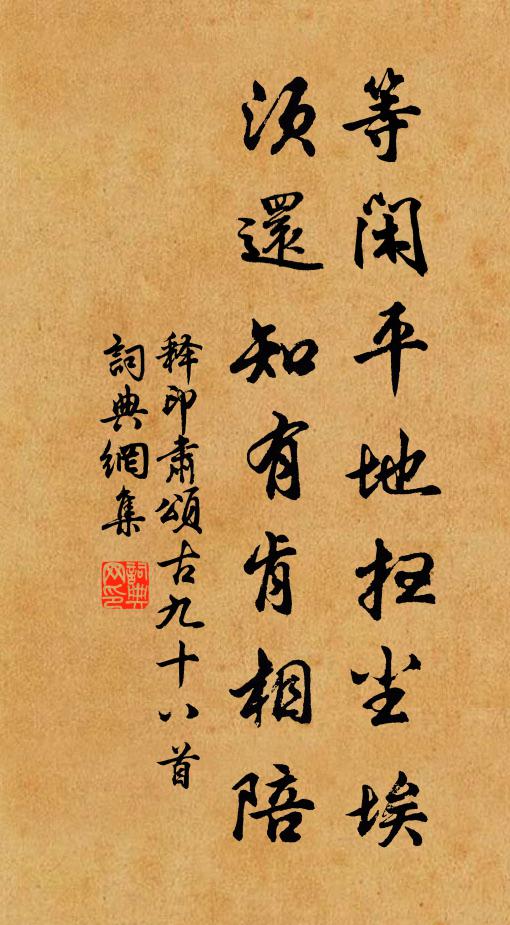 等闲平地扫尘埃
须還知有肯相陪
释印肃頌古九十八首
詞典網集
詞典网印